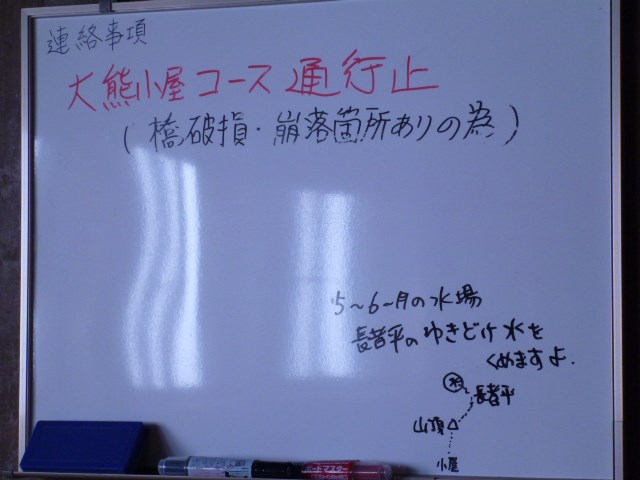 連絡事項
大熊小屋コース通行止
(橋破損・崩落箇所ありの為)
5~6月の水場
長者平のゆきどけ水を
くめますよ.
水
長者平
山頂
小屋
ボードマスター